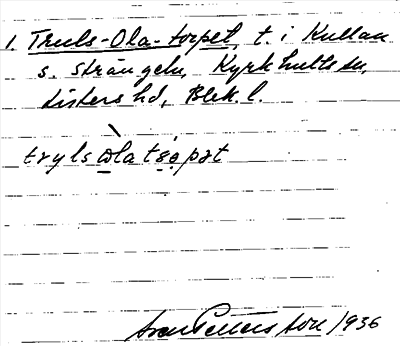 1. Truls-Ola-torpet, t. i Kullan
s. Strångeln, Kyrkhults sn,
Listers hd, Blek. l.
tryls ɷ̀la tso̤pət
Sven Petersson 1936